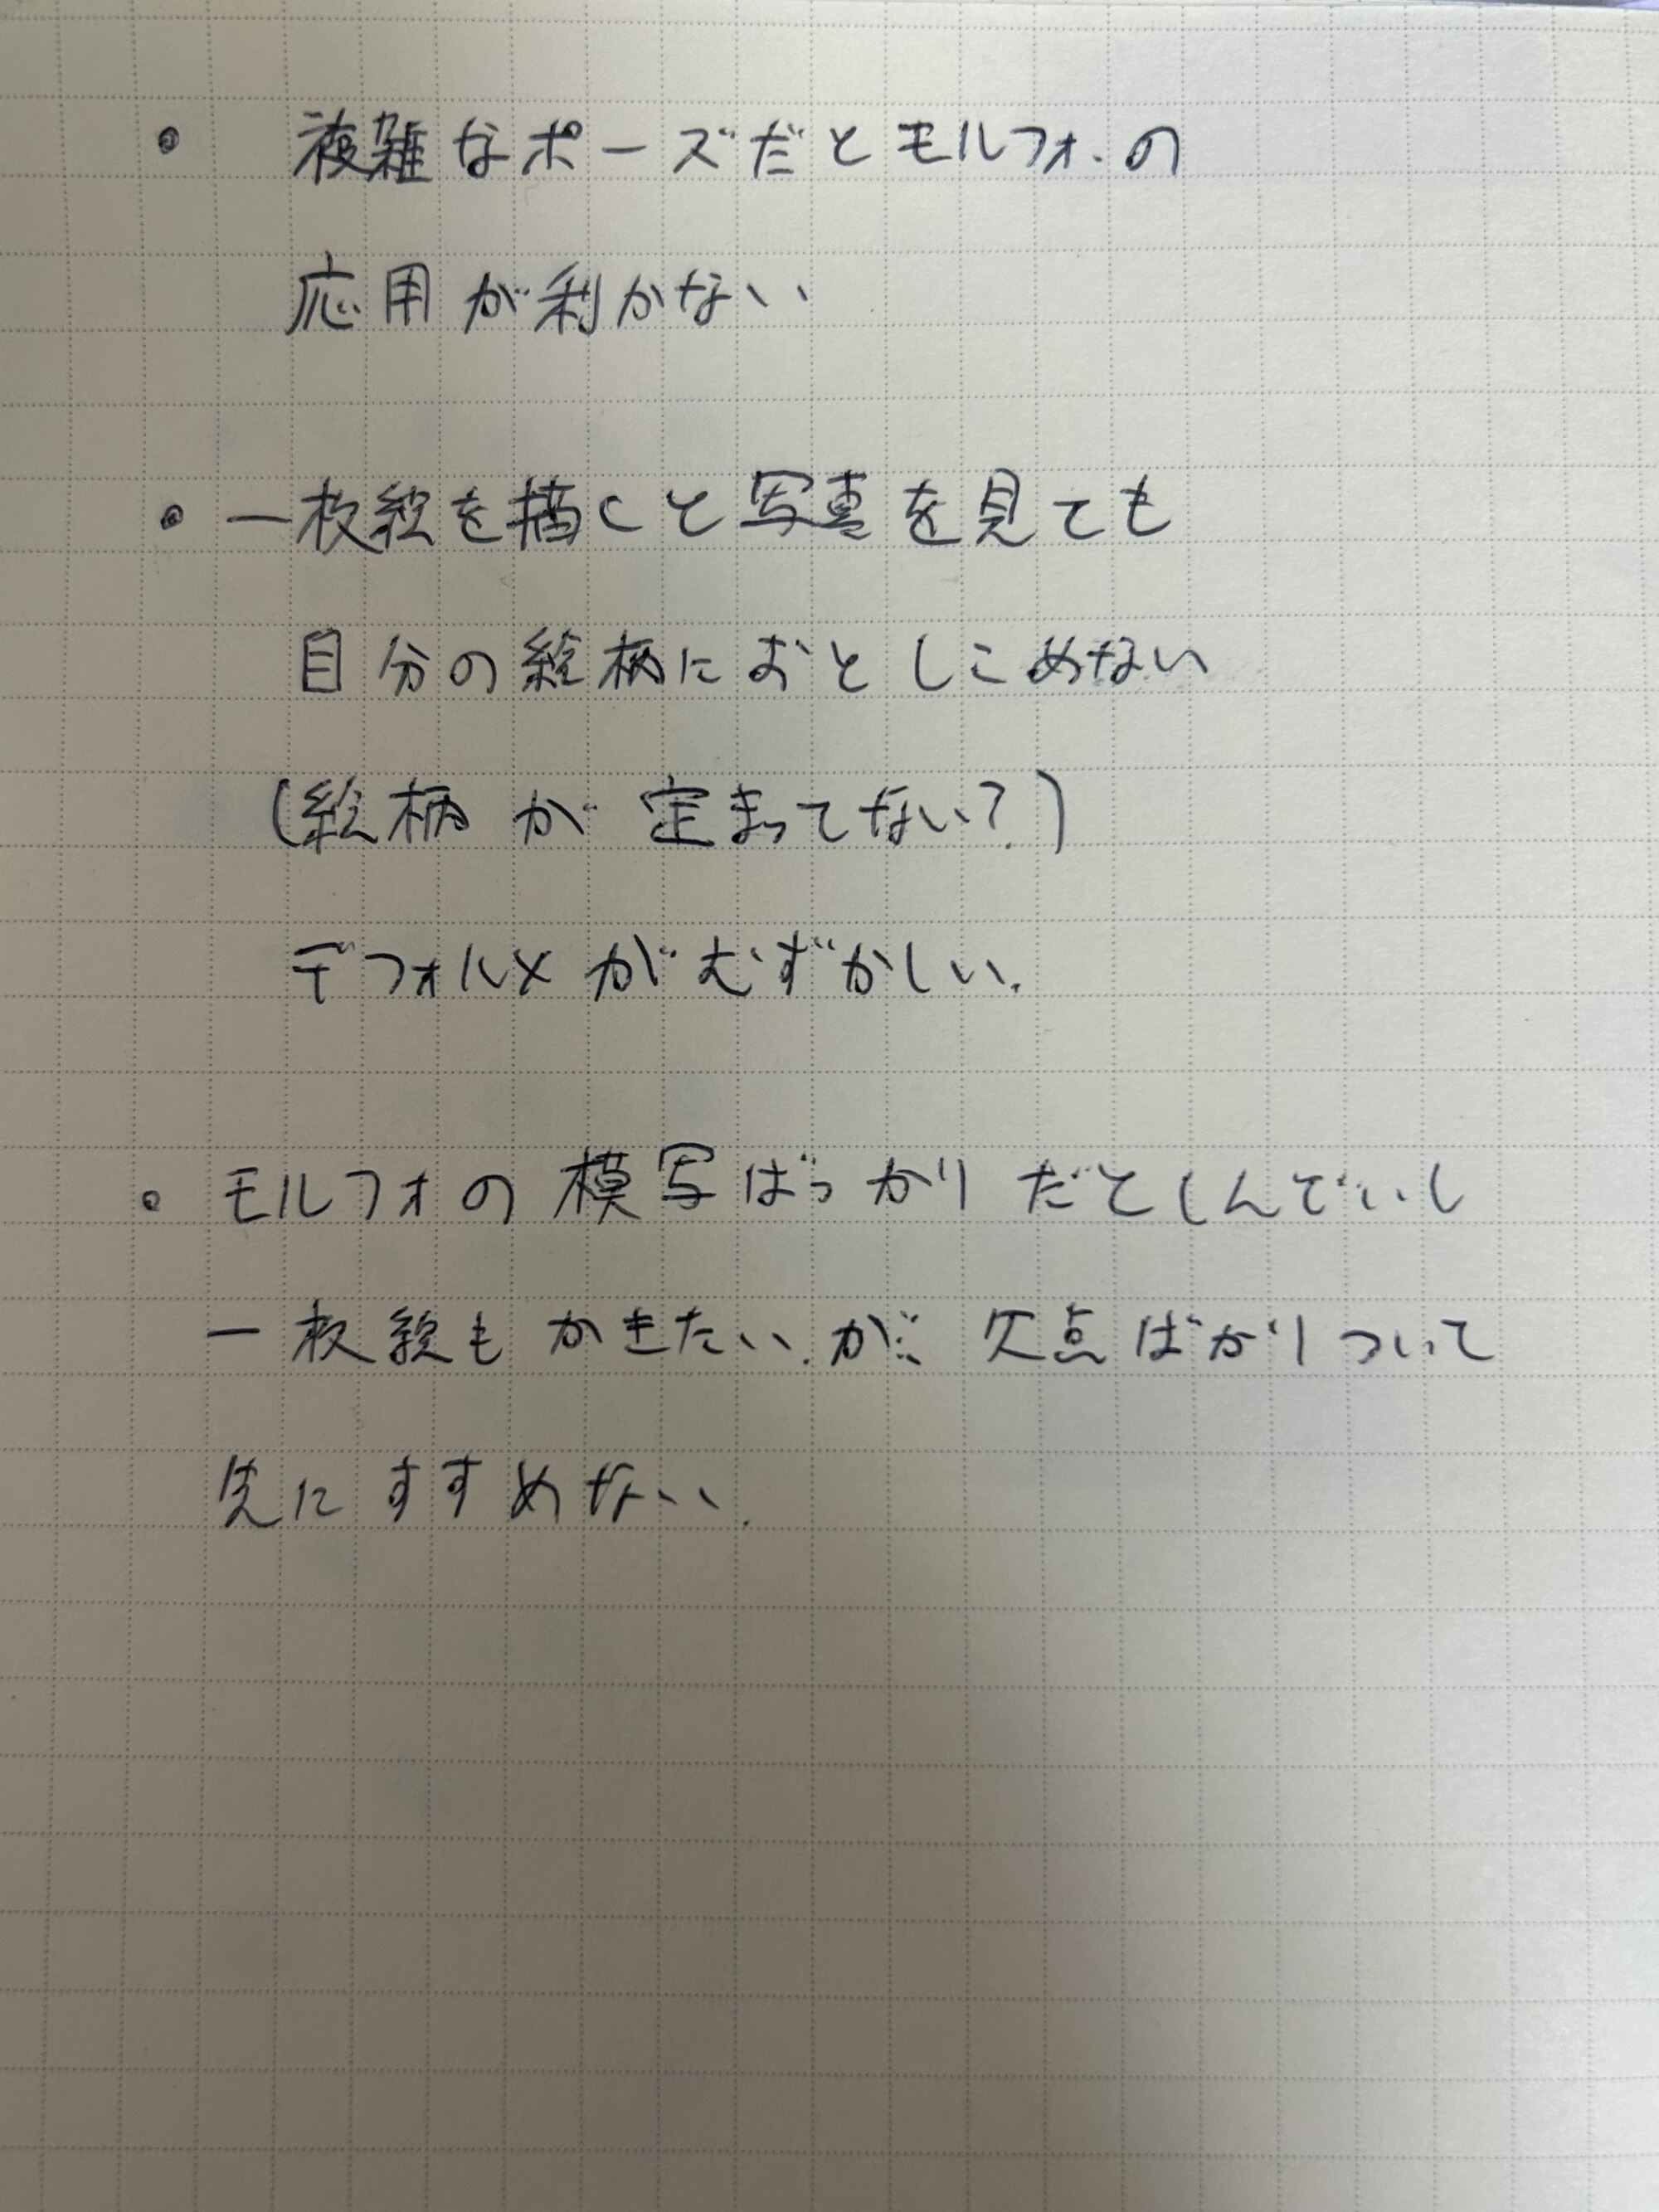 • 複雑なポーズだとモルフォの
応用が利かない
• 一枚絵を描くと写真を見ても
自分の絵柄におとしこめない
(絵柄が定まってない?)
デフォルメがむずかしい.
• モルフォの模写ばっかりだとしんどいし
一枚絵もかきたい.が… 欠点ばかりついて
先にすすめない.